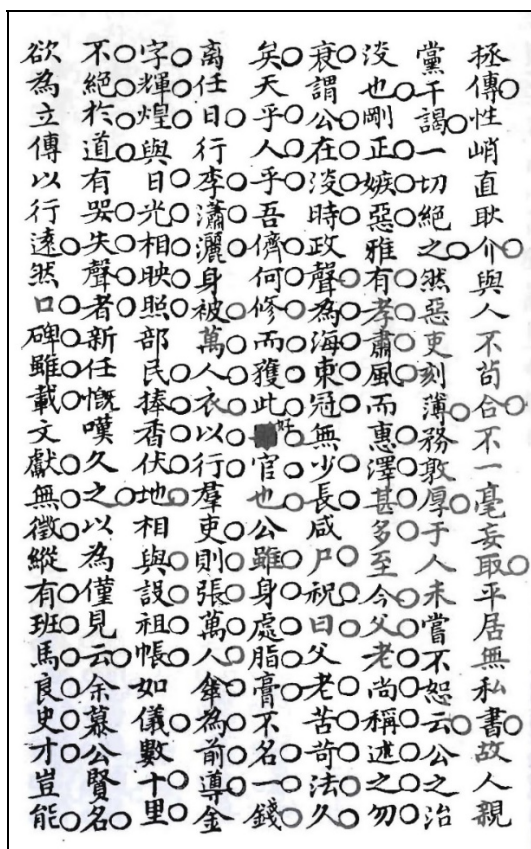 拯傳性峭直耿介與人不苟合不一毫妄取平居無私書故人親
黨干謁一切絕之然惡吏刻薄務敦厚于人未嘗不恕云公之治
淡也剛正嫉惡雅有孝肅風而惠澤甚多至今父老尚稱述之勿
衰謂公在淡時政聲為海東冠無少長咸尸祝曰父老苦苛法久
矣天乎人乎吾儕何修而獲此好官也公雖身處脂膏不名一錢
离任日行李瀟灑身被萬人衣以行羣吏則張萬人傘為前導金
字輝煌與日光相映照部民捧香伏地相與設祖帳如儀數十里
不絕於道有哭失聲者新任慨嘆久之以為僅見云余慕公賢名
欲為立傳以行遠然口碑雖載文獻無徵縱有班馬良史才豈能